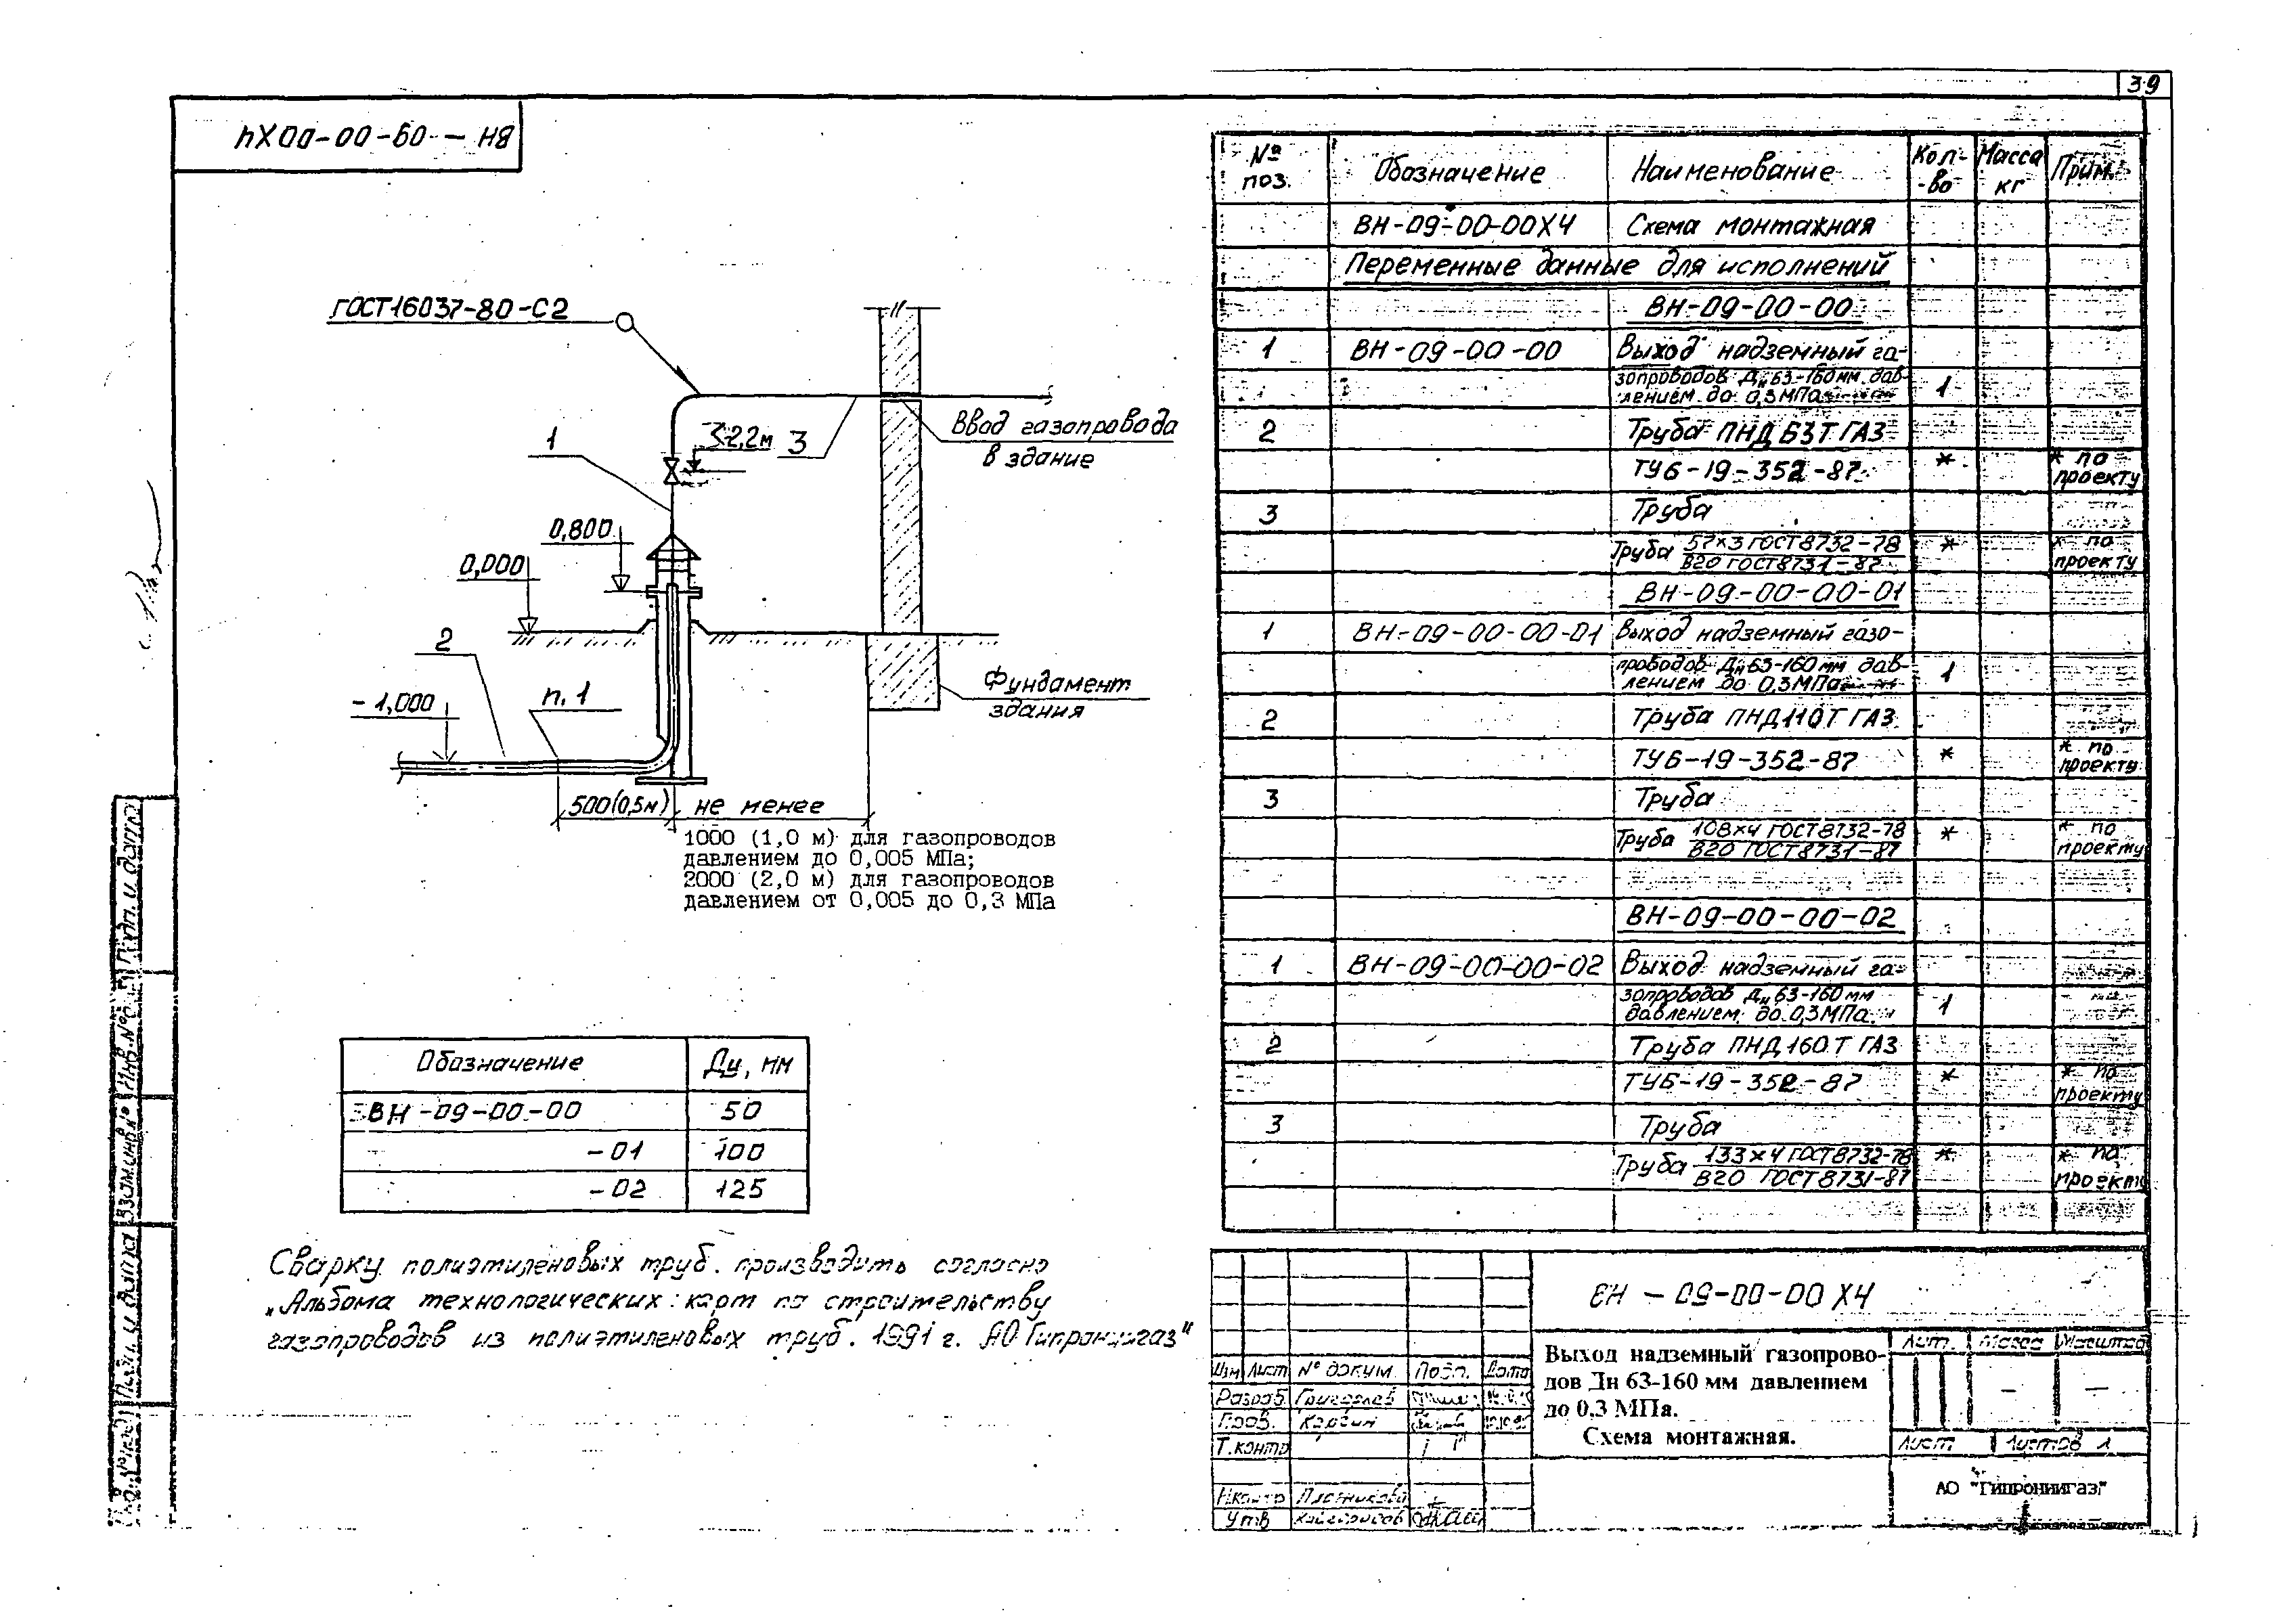 39
ВН-09-00-00Х4
ГОСТ16037-80-С2
1
3
Ввод газопровода
в здание
0,800
0,000
2
п.1
-1,000
Фундамент
здания
500(0,5м)
не менее
1000 (1,0 м) для газопроводов
давлением до 0,005 МПа;
2000 (2,0 м) для газопроводов
давлением от 0,005 до 0,3 МПа
Обозначение Ду, мм
ВН-09-00-00 50
-01 100
-02 125
Сварку полиэтиленовых труб производить согласно
„Альбома технологических карт по строительству
газопроводов из полиэтиленовых труб. 1991 г. АО Гипрониигаз"
№ поз. Обозначение Наименование Кол-во Масса кг Прим.
ВН-09-00-00Х4 Схема монтажная
Переменные данные для исполнений
ВН-09-00-00
1 ВН-09-00-00 Выход надземный га-
зопроводов Дн 63-160мм дав-
лением до 0,3 МПа 1
2 Труба ПНД 63Т ГАЗ
ТУ6-19-352-87 * * по проекту
3 Труба
Труба 57×3 ГОСТ8732-78 * * по
В20 ГОСТ8731-87 проекту
ВН-09-00-00-01
1 ВН-09-00-00-01 Выход надземный газо-
проводов Дн 63-160мм дав-
лением до 0,3МПа 1
2 Труба ПНД110Т ГАЗ
ТУ6-19-352-87 * * по проекту
3 Труба
Труба 108×4 ГОСТ8732-78 * * по
В20 ГОСТ8731-87 проекту
ВН-09-00-00-02
1 ВН-09-00-00-02 Выход надземный га-
зопроводов Дн 63-160мм
давлением до 0,3МПа 1
2 Труба ПНД160Т ГАЗ
ТУ6-19-352-87 * * по проекту
3 Труба
Труба 133×4 ГОСТ8732-78 * * по
В20 ГОСТ8731-87 проекту
ВН-09-00-00Х4
Выход надземный газопрово-
дов Дн 63-160 мм давлением
до 0,3 МПа.
Схема монтажная.
Лит. Масса Масштаб
- -
Лист Листов 1
АО "Гипрониигаз"
Изм Лист № докум. Подп. Дата
Разраб.
Пров.
Т.контр
Н.контр Плотникова
Утв
Подп. и дата
Взам.инв.№
Подп. и дата